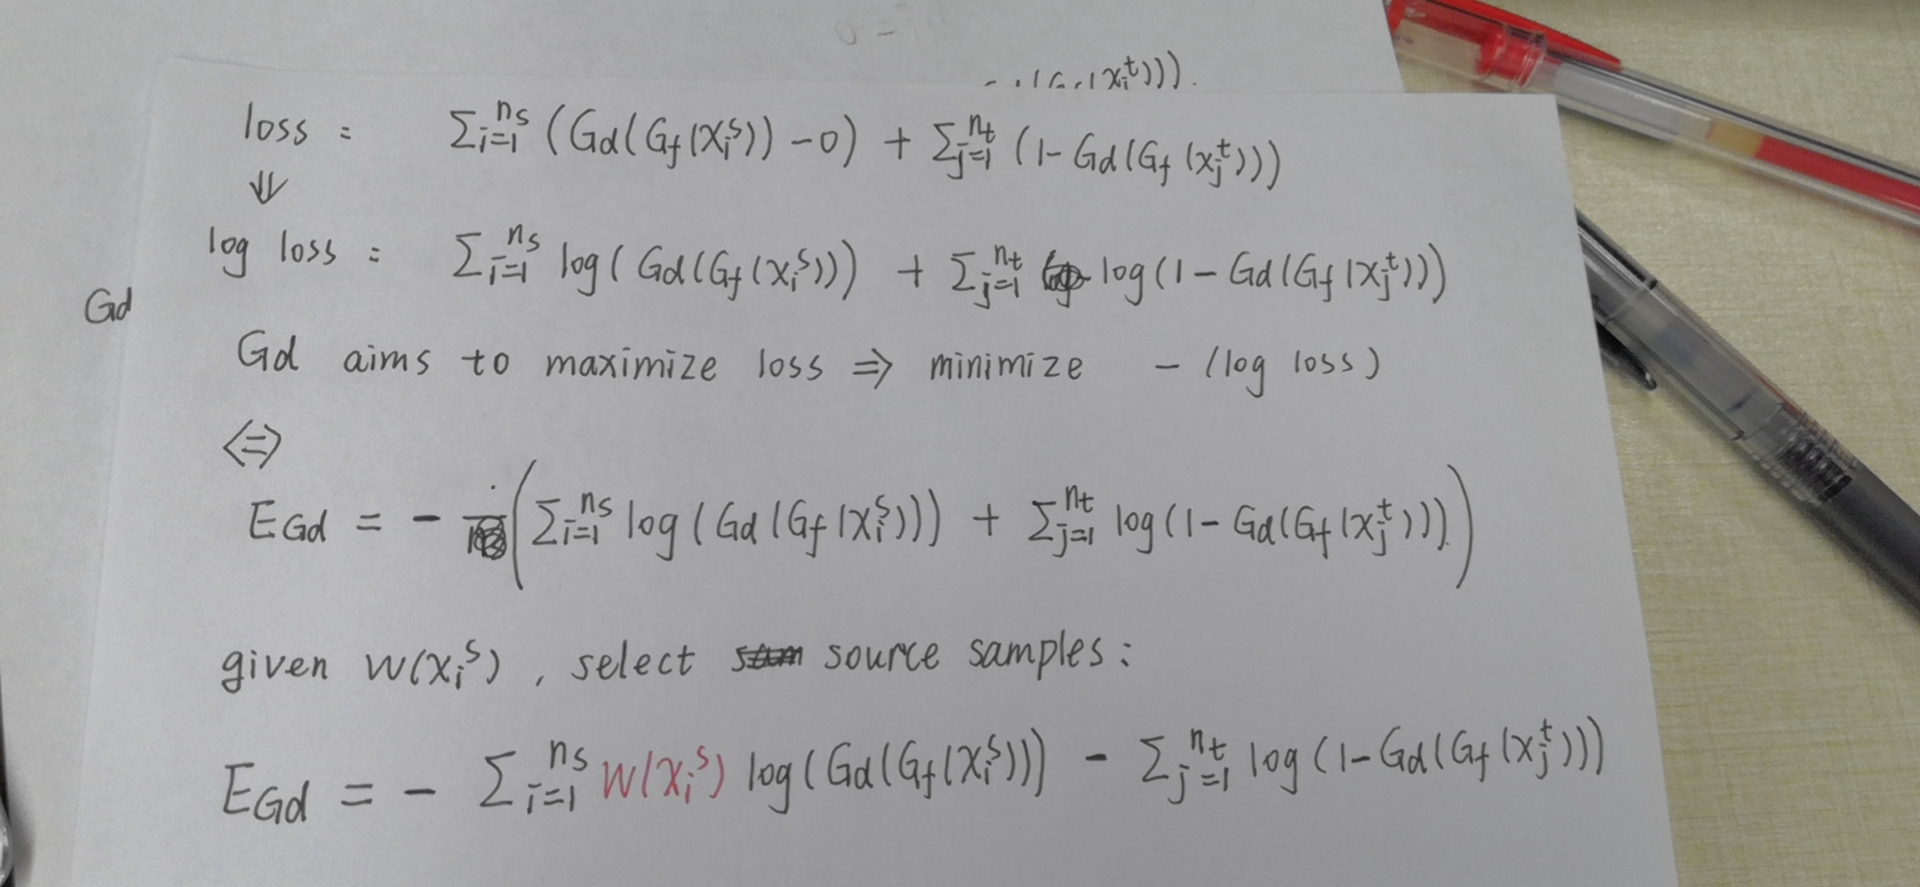 (x_i^t))).
loss : Σ_{i=1}^{ns} (Gd(Gf(x_i^s)) - 0) + Σ_{j=1}^{nt} (1 - Gd(Gf(x_j^t)))
⇓
log loss : Σ_{i=1}^{ns} log(Gd(Gf(x_i^s))) + Σ_{j=1}^{nt} log(1 - Gd(Gf(x_j^t)))
Gd
Gd aims to maximize loss ⇒ minimize - (log loss)
⇔
E_{Gd} = - (Σ_{i=1}^{ns} log(Gd(Gf(x_i^s))) + Σ_{j=1}^{nt} log(1 - Gd(Gf(x_j^t))))
given w(x_i^s), select source samples:
E_{Gd} = - Σ_{i=1}^{ns} w(x_i^s) log(Gd(Gf(x_i^s))) - Σ_{j=1}^{nt} log(1 - Gd(Gf(x_j^t)))